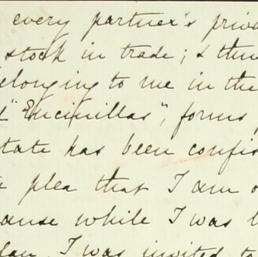 every partner's priva
stock in trade; & thus
belonging to me in the
"Encinillas", forms p
state has been confis
plea that I am o
ause while I was
I was invited to